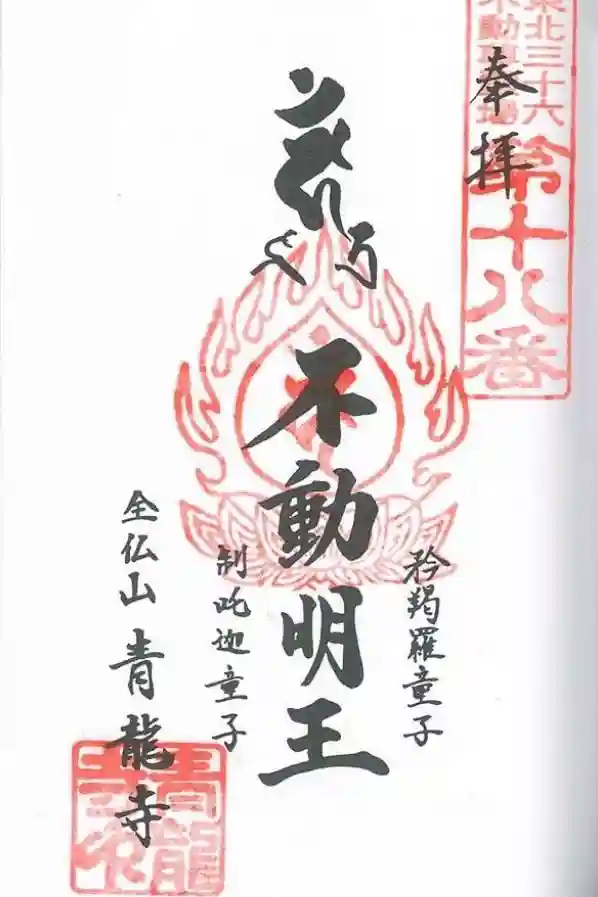 東北三十六
不動尊霊場
第十八番
奉拝
矜羯羅童子
不動明王
制吒迦童子
全仏山 青龍寺
青龍